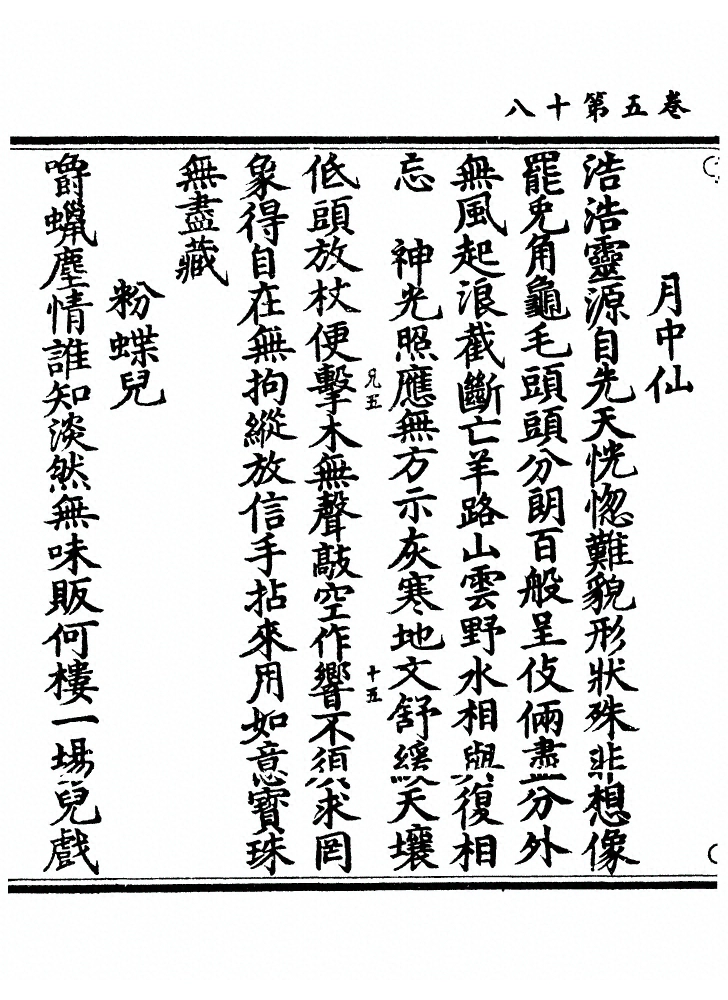 卷五第十八
月中仙
浩浩靈源自先天恍惚難貌形狀殊非想像
罷兎角龜毛頭頭分朗百般呈伎倆盡分外
無風起浪截斷亡羊路山雲野水相與復相
忘　神光照應無方示灰寒地文舒緩天壤
低頭放杖便擊木無聲敲空作響不須求罔
兄五
十五
象得自在無拘縱放信手拈來用如意寶珠
無盡藏
粉蝶兒
嚼蠟塵情誰知淡然無味販何樓一場兒戲